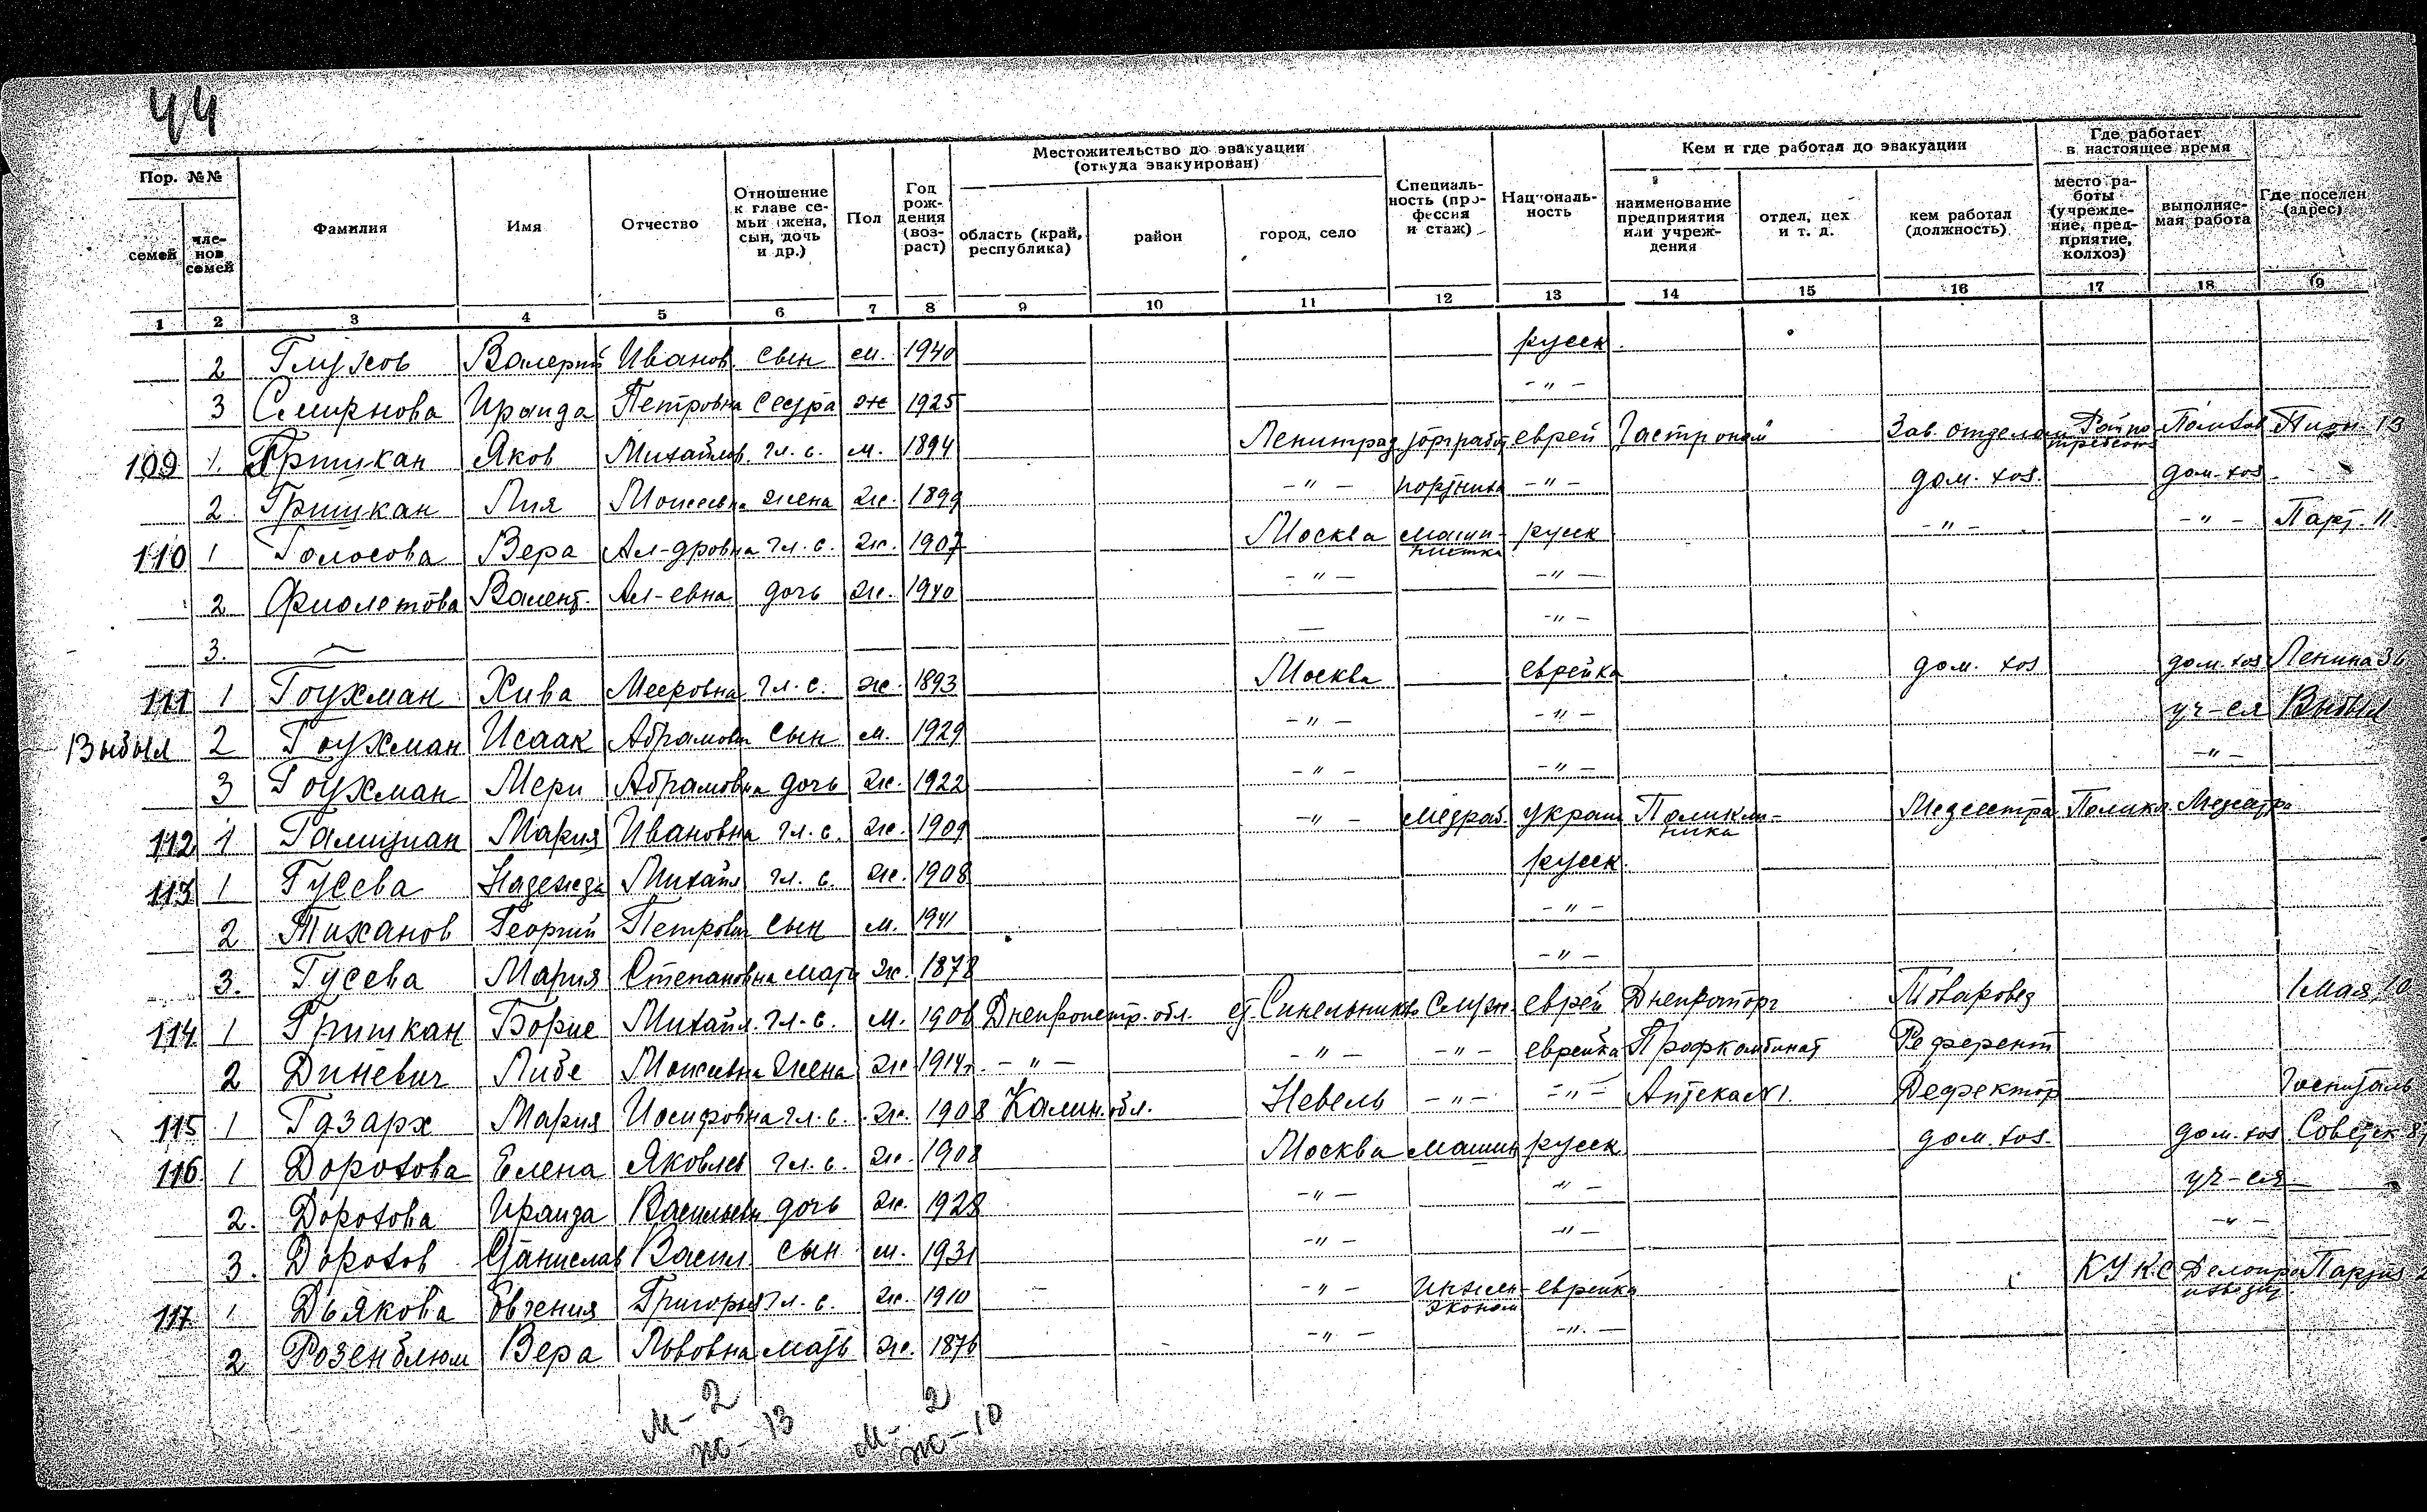 44
Пор. №№ Фамилия Имя Отчество Отношение к главе семьи (жена, сын, дочь и др.) Пол Год рождения (возраст) Местожительство до эвакуации (откуда эвакуирован) Специальность (профессия и стаж) Национальность Кем и где работал до эвакуации Где работает в настоящее время Где поселен (адрес)
семей членов семей область (край, республика) район город, село наименование предприятия или учреждения отдел, цех и т. д. кем работал (должность) место работы (учреждение, предприятие, колхоз) выполняемая работа
1 2 3 4 5 6 7 8 9 10 11 12 13 14 15 16 17 18 19
2 Глухов Валерий Иванов. сын м. 1940 русск.
3 Смирнова Ираида Петровна сестра ж 1925 -"-
109 1. Гришкан Яков Михайлов. гл. с. м. 1894 Ленинград торгработ еврей Гастроном Зав. отделом Пион. 13
2 Гришкан Лия Моисеевна жена ж. 1899 -"- портниха -"- дом. хоз. дом. хоз.
110 1 Голосова Вера Ал-дровна гл. с. ж. 1907 Москва машинистка русск -"- -"- Парт. 11
2 Фиолетова Валент. Ал-евна дочь ж. 1940 -"- -"-
3. — — -"-
111 1 Гоухман Хива Мееровна гл. с. ж. 1893 Москва еврейка дом. хоз дом. хоз Ленина 36
Выбыл 2 Гоухман Исаак Абрамович сын м. 1929 -"- -"- уч-ся Выбыл
3 Гоухман Мери Абрамовна дочь ж. 1922 -"- -"- -"-
112 1 Галициан Мария Ивановна гл. с. ж. 1909 -"- медраб. украин Поликлиника Медсестра Поликл. Медсестра
113 1 Гусева Надежда Михайл гл. с. ж. 1908 русск.
2 Тиханов Георгий Петрович сын м. 1941 -"-
3. Гусева Мария Степановна мать ж. 1878 -"-
114 1 Гришкан Борис Михайл. гл. с. м. 1906 Днепропетр. обл. ст. Синельниково Служ. еврей Днепроторг Товаровед 1 мая, 10
2 Диневич Либе Моисеевна жена ж 1914г. -"- -"- -"- еврейка Профкомбинат Референт
115 1 Газарх Мария Иосифовна гл. с. ж. 1908 Калин. обл. Невель -"- -"- Аптека №1. Дефектор Госпиталь
116 1 Дорохова Елена Яковлев гл. с. ж. 1908 Москва машин русск дом. хоз. дом. хоз Советск
2. Дорохова Ираида Васильевн дочь ж. 1928 -"- -"- уч-ся
3. Дорохов Станислав Васил сын м. 1931 -"- -"- -"-
117 1 Дьякова Евгения Григорьев гл. с. ж. 1910 -"- Инжен эконом еврейка КУКС Делопроизвод.
2 Розенблюм Вера Львовна мать ж. 1876 -"- -"-
м - 2 м - 2
ж - 13 ж - 10